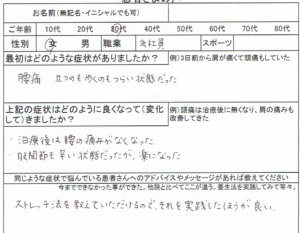 お名前(無記名・イニシャルでも可)
ご年齢 10代 20代 30代 40代 50代 60代 70代
性別 女 男 職業 会社員 スポーツ
最初はどのような症状がありましたか? 例)3日前から肩が痛くて頭痛もしていた
腰痛 立つのも歩くのもつらい状態だった
上記の症状はどのように良くなって(変化して)きましたか? 例)頭痛は治療後に無くなり、肩の痛みも改善してきた
・治療後は腰の痛みがなくなった
・股関節も 状態だったが、楽になった
同じような症状で悩んでいる患者さんへのアドバイスやメッセージがあれば教えてください
今までできなかった事ができた。他院と比べてここが違う。養生法を実践してみて等々。
ストレッチ法を教えていただけるので、それを実践したほうが良い。